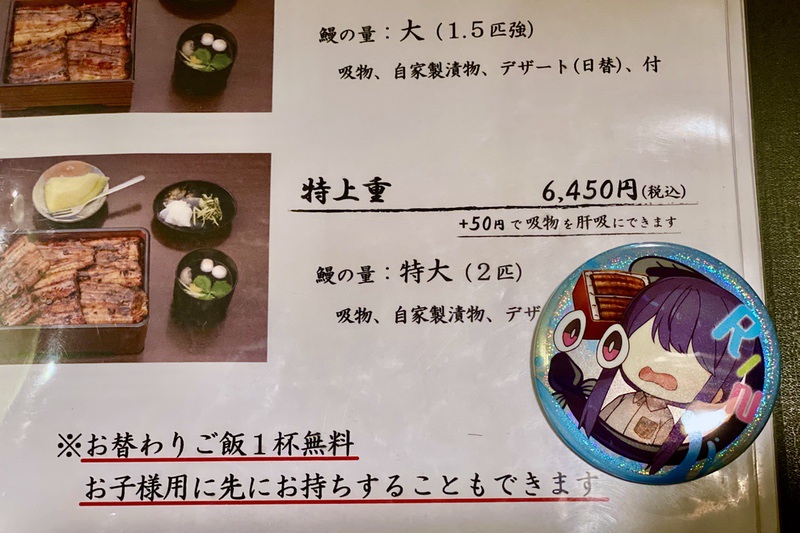 鰻の量：大（1.5匹強）
吸物、自家製漬物、デザート(日替)、付
特上重 6,450円(税込)
+50円で吸物を肝吸にできます
鰻の量：特大（2匹）
吸物、自家製漬物、デザ
RIN
※お替わりご飯1杯無料
お子様用に先にお持ちすることもできます